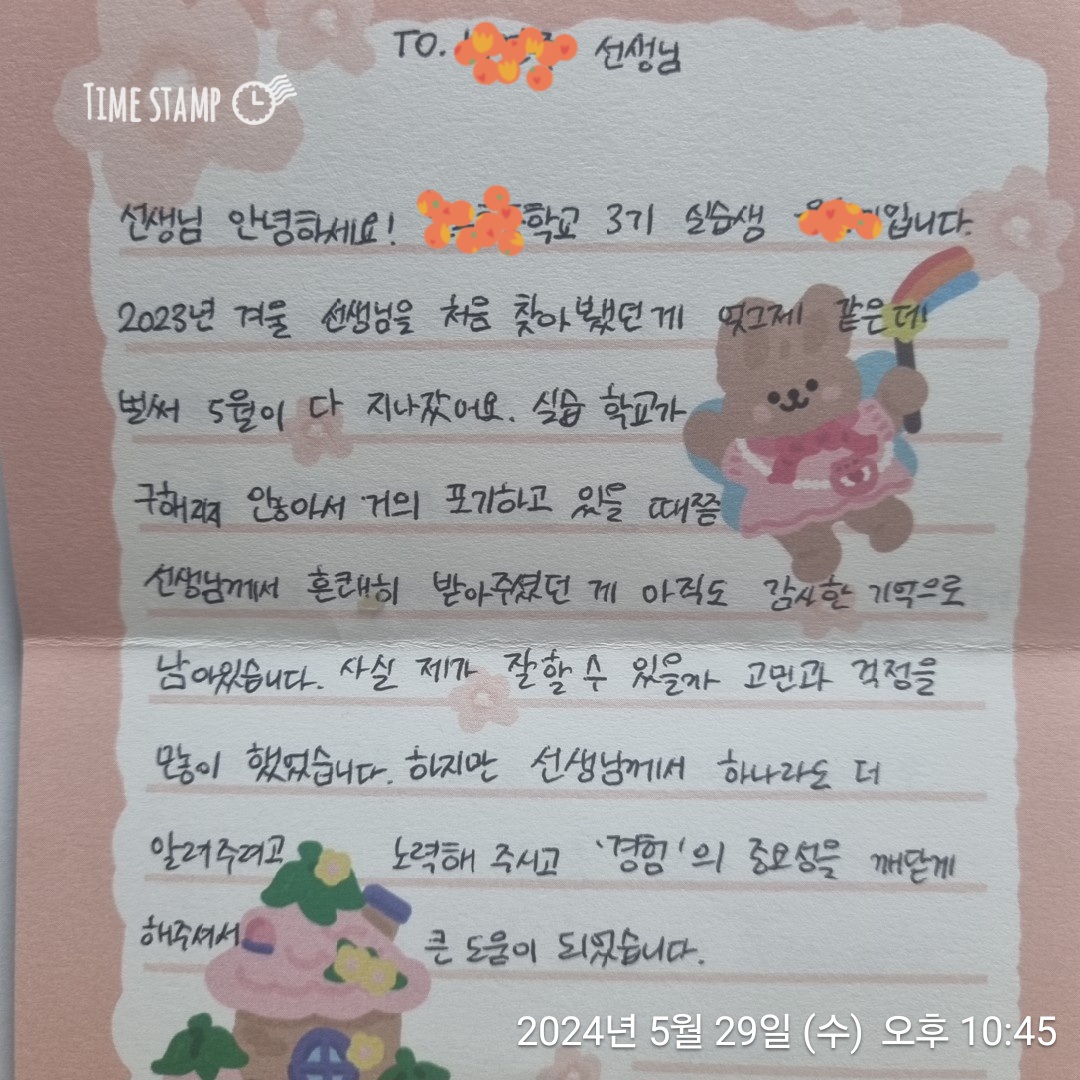 TO. 선생님
TIME STAMP
선생님 안녕하세요! 학교 3기 실습생 입니다.
2023년 겨울 선생님을 처음 찾아뵀던 게 엊그제 같은데
벌써 5월이 다 지나갔어요. 실습 학교가
구해지지 않아서 거의 포기하고 있을 때쯤
선생님께서 흔쾌히 받아주셨던 게 아직도 감사한 기억으로
남아있습니다. 사실 제가 잘할 수 있을까 고민과 걱정을
많이 했었습니다. 하지만 선생님께서 하나라도 더
알려주려고 노력해 주시고 '경험'의 중요성을 깨닫게
해주셔서 큰 도움이 되었습니다.
2024년 5월 29일 (수) 오후 10:45